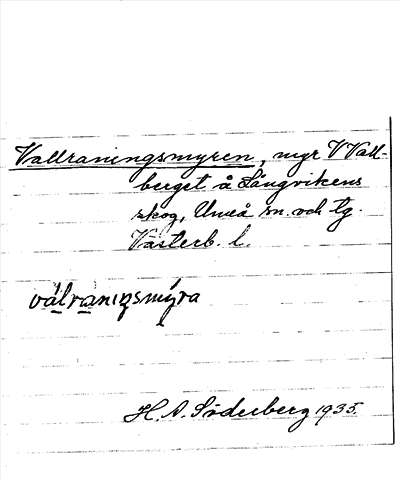 Vallraningsmyren, myr V Vall-
berget å Långvikens
skog, Umeå sn. och tg.
Västerb. l.
válranıŋsmy̨ra
H. A. Söderberg 1935.